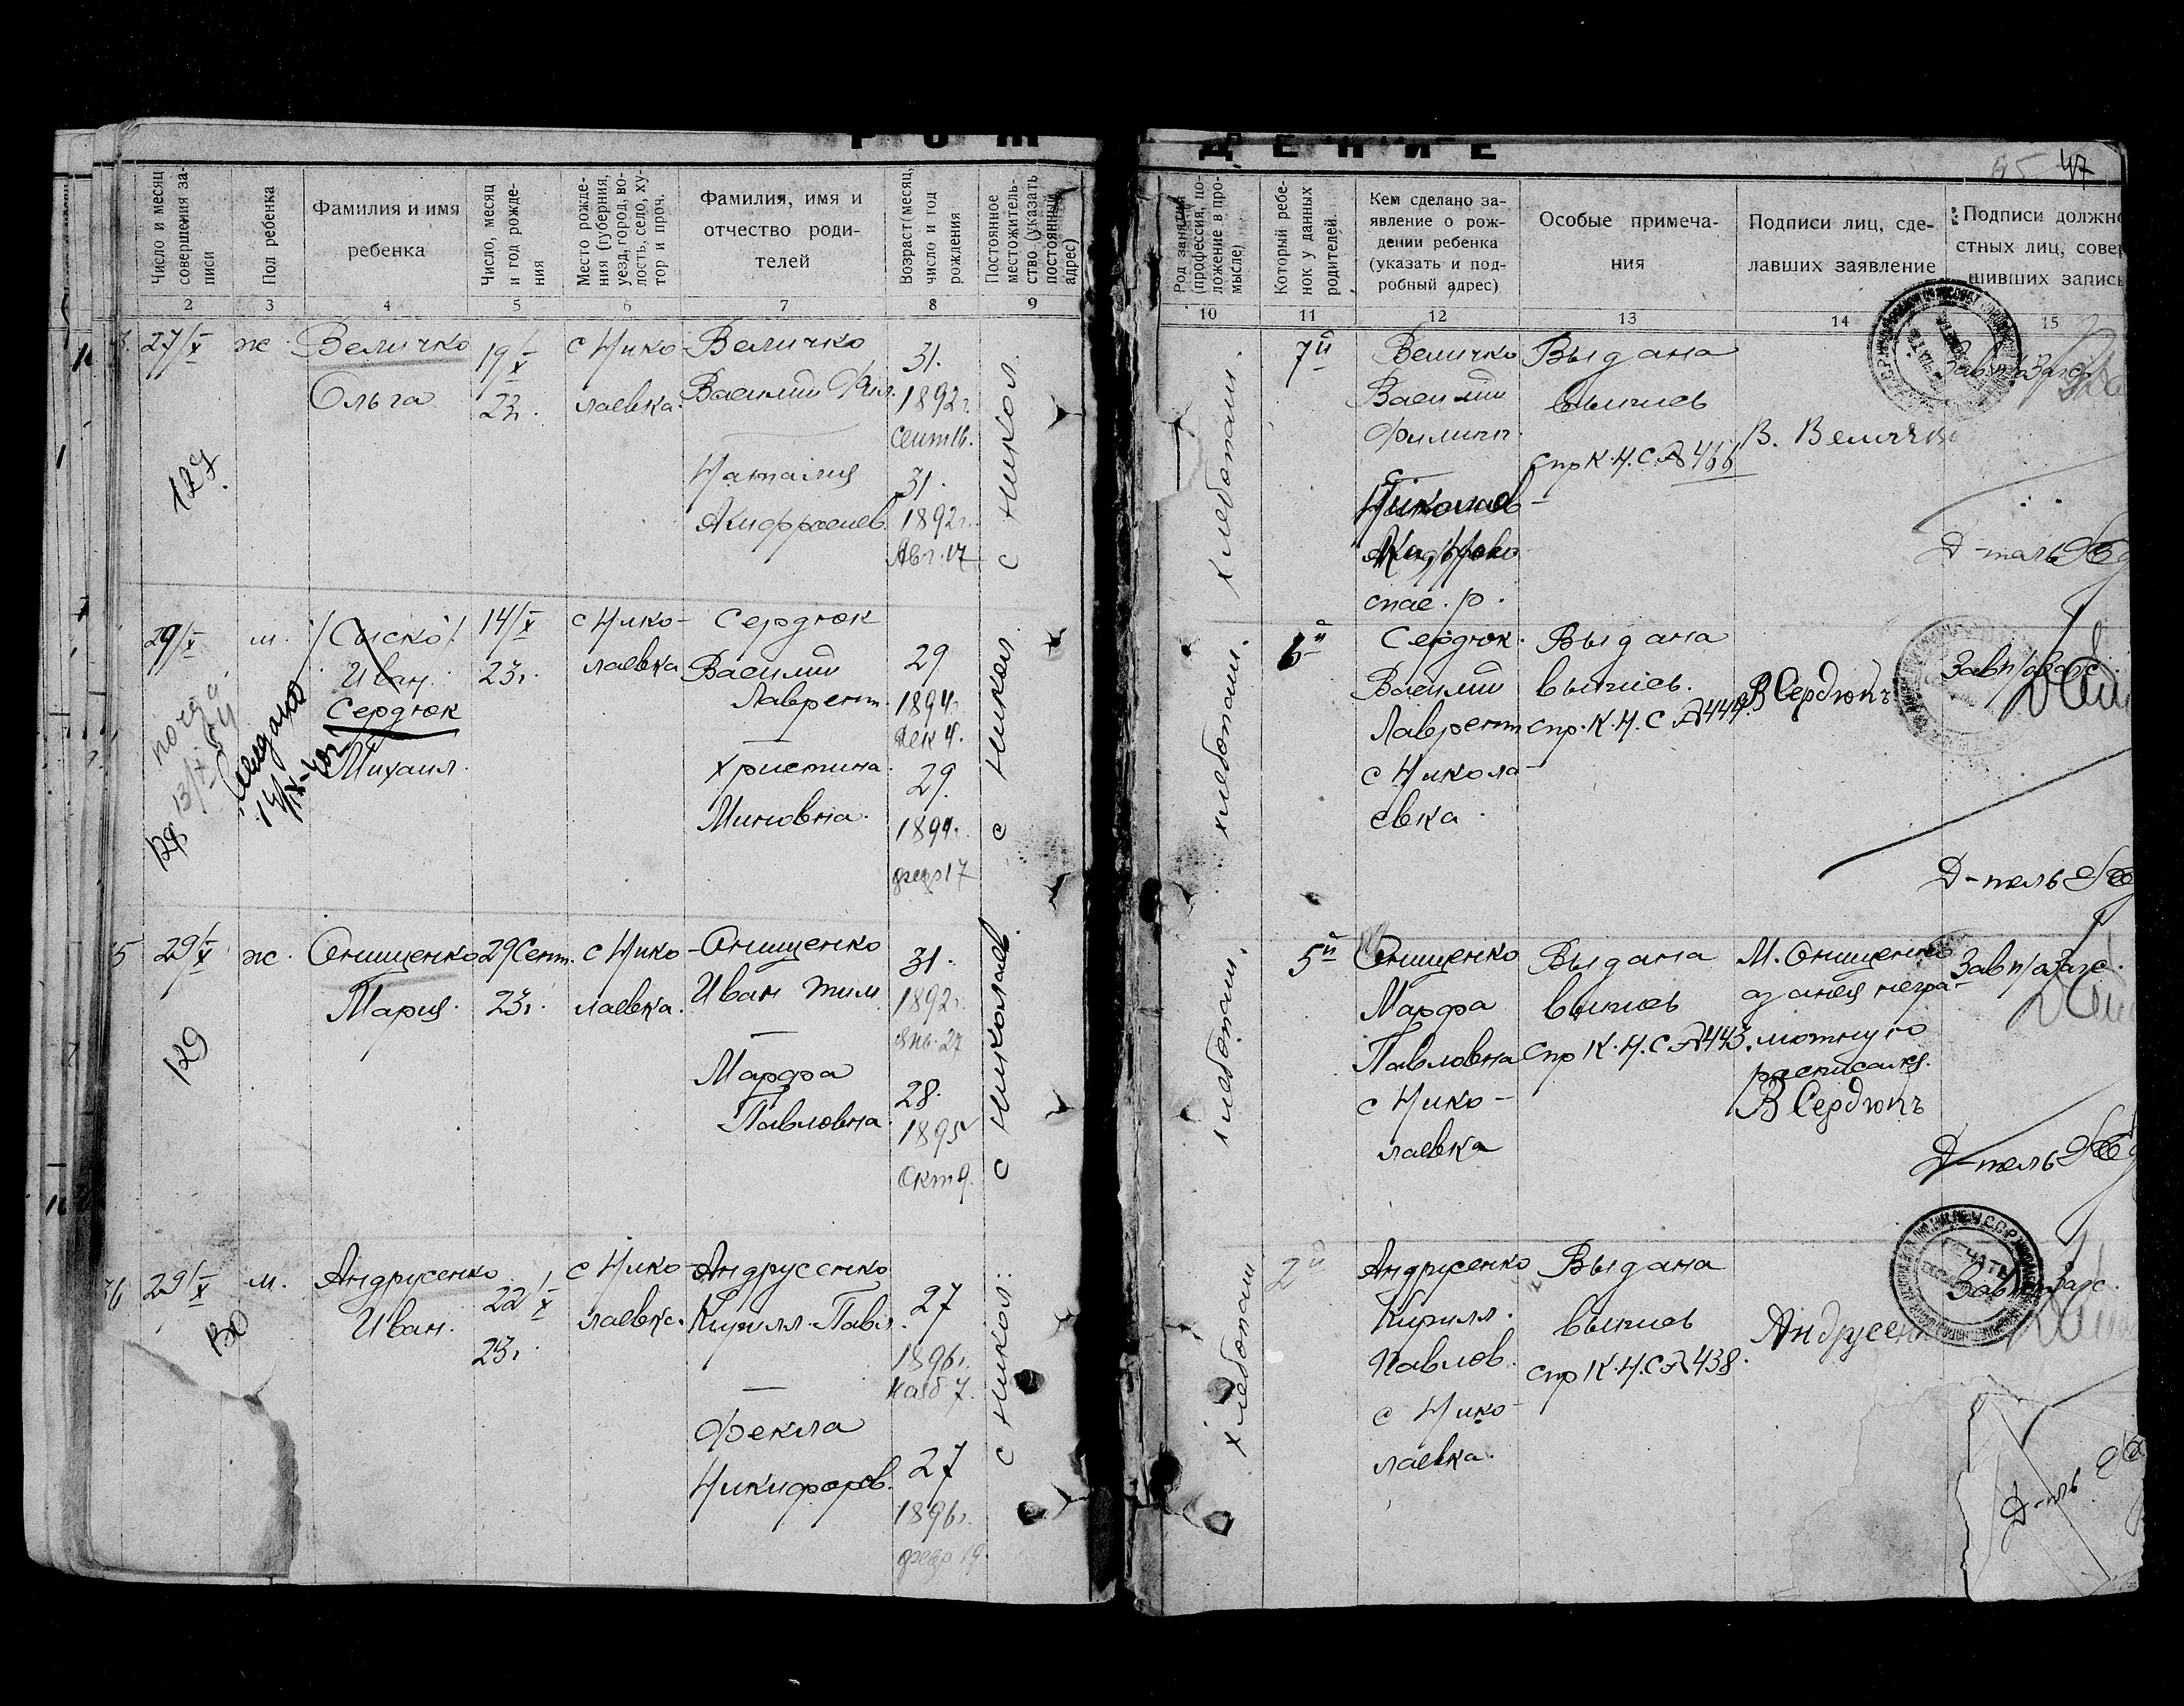 РОЖ
ДЕНИЕ
47
Число и месяц
совершения за-
писи
Пол ребенка
Фамилия и имя
ребенка
Число, месяц
и год рожде-
ния
Место рожде-
ния (губерния,
уезд, город, во-
лость, село, ху-
тор и проч.
Фамилия, имя и
отчество роди-
телей
Возраст (месяц,
число и год
рождения
Постоянное
местожитель-
ство (указать
постоянный
адрес)
Род занятия
(профессия, по-
ложение в про-
мысле)
Который ребе-
нок у данных
родителей
Кем сделано за-
явление о рож-
дении ребенка
(указать и под-
робный адрес)
Особые примеча-
ния
Подписи лиц, сде-
лавших заявление
Подписи должно
стных лиц, совер
шивших запись
2 3 4 5 6 7 8 9
10 11 12 13 14 15
27/X
127.
ж
Величко
Ольга
19/X
23.
с Нико-
лаевка.
Величко
Василий Фил.
Наталия
31.
1892 г.
Сент 16.
31.
1892 г.
Авг. 17
с Никол.
хлебопаш.
7й
Величко
Василий
Филипп.
Выдана
выпись
спр К.Н.С. № 466
В. Величко
Д-тель
29/X
128
м.
/Сиско/
Иван.
Сердюк
Михаил.
14/X
23г.
с Нико-
лаевка
Сердюк
Василий
Лаврент.
Христина
Миновна.
29
1894г.
дек 4.
29.
1894г.
февр 17
с Никол.
хлебопаш.
6й
Сердюк.
Василий
Лаврент
с Никола-
евка.
Выдана
выпись.
спр. К.Н.С №444
В Сердюкъ
Зав п/о Загс.
Д-тель
5
29/X
129
ж.
Онищенко
Мария.
29 Сент.
23г.
с Нико-
лаевка.
Онищенко
Иван Тим
Марфа
Павловна.
31.
1892г.
янв. 27
28.
1895
Окт 9.
с Николаев.
хлебопаш.
5й
Онищенко
Марфа
Павловна
с Нико-
лаевка
Выдана
выпись
спр К.Н.С №443.
М. Онищенко
а за нея негра-
мотную
росписался.
В Сердюкъ
Зав п/о Загс.
Д-тель
29/X
130
м.
Андрусенко
Иван.
22/X
23г.
с Нико-
лаевка.
Андрусенко
Кирилл Павл.
Фекла
Никифоров.
27
1896г.
27
1896г.
февр 19.
с Никол.
хлебопаш
2й
Андрусенко
Кирилл.
Павлов.
с Нико-
лаевка.
Выдана
выпись
спр К.Н.С №438.
Андрусенко
Д-тель